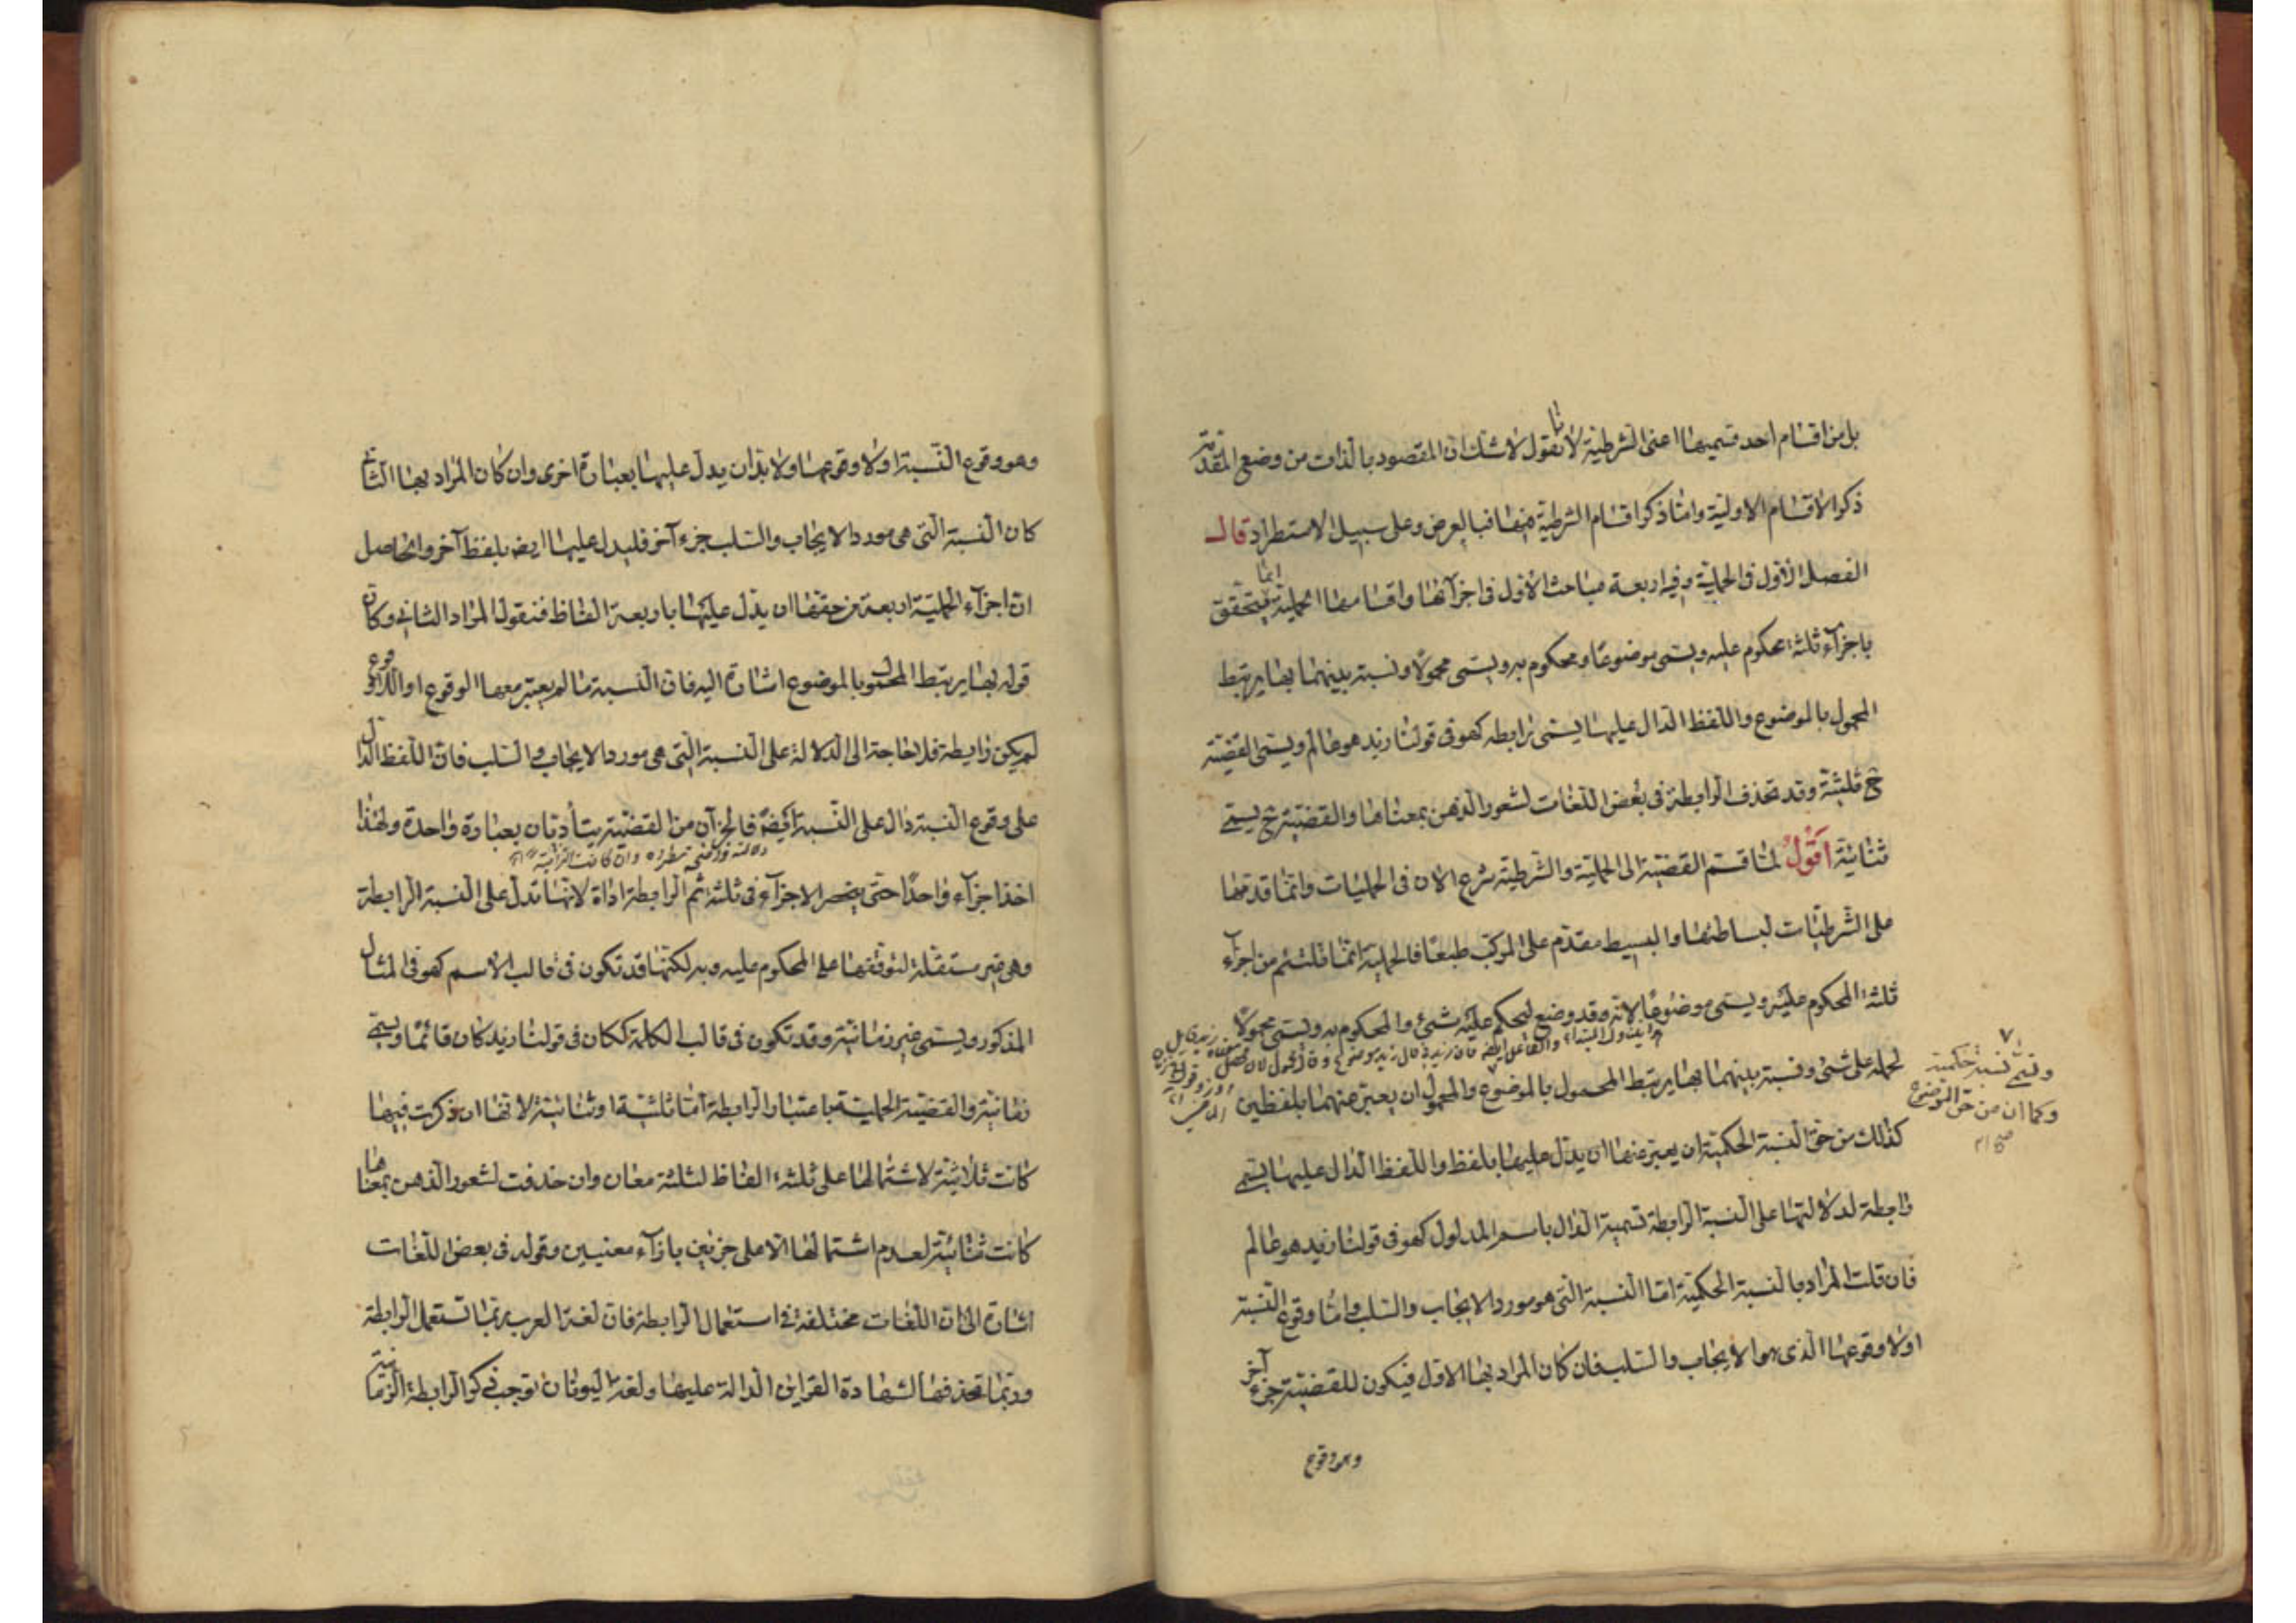 بل من اقسام احد قسميها اعنى الشرطية لانا نقول لا شك ان المقصود بالذات من وضع المقدمة
ذكر الاقسام الاولية واما ذكر اقسام الشرطية فيها فبالعرض وعلى سبيل الاستطراد قال
الفصل الاول فى الحملية وفيه اربعة مباحث الاول فى اجزآئها واقسامها الحملية انما تتحقق
باجزآء ثلثة محكوم عليه ويسمى موضوعا ومحكوم به ويسمى محمولا ونسبة بينهما بها يرتبط
المحمول بالموضوع واللفظ الدال عليها يسمى رابطه كهو فى قولنا زيد هو عالم ويسمى القضية
ح ثلثية وقد تحذف الرابطة فى بعض اللغات لشعور الذهن بمعناها والقضية ح يسمى
ثنائية اقول لما قسم القضية الى الحملية والشرطية شرع الان فى الحمليات وانما قدمها
على الشرطيات لبساطتها والبسيط مقدم على المركب طبعا فالحملية انما تلتئم من اجزآء
ثلثة المحكوم عليه ويسمى موضوعا لانه قد وضع ليحكم عليه شىء والمحكوم به ويسمى محمولا
لحمله على شىء ونسبة بينهما بها يرتبط المحمول بالموضوع والمحمول ان يعبر عنهما بلفظين
وتسمى نسبة حكمية
وكما ان من حق الموضوع
صح
كذلك من حق النسبة الحكمية ان يعبر عنها ان يدل عليها بلفظ واللفظ الدال عليها يسمى
رابطة لدلالتها على النسبة الرابطة تسمية الدال باسم المدلول كهو فى قولنا زيد هو عالم
فان قلت المراد بالنسبة الحكمية اما النسبة التى هو مورد الايجاب والسلب واما وقوع النسبة
اولا وقوعها الذى هو الايجاب والسلب فان كان المراد بها الاول فيكون للقضية جزء آخر
وهو وقوع
وهو وقوع النسبة اولا وقوعها ولا بد ان يدل عليها بعبارة اخرى وان كان المراد بها الثانى
كان النسبة التى هى مورد الايجاب والسلب جزء آخر فليدل عليها ايض بلفظ آخر والحاصل
ان اجزآء الحملية اربعة من حقها ان يدل عليها باربعة الفاظ فنقول المراد الثانى وكان
قوله بها يرتبط المحمول بالموضوع اشارة اليه فان النسبة ما لم يعتبر معها الوقوع او اللاوقوع
لم يكن رابطة فلا حاجة الى الدلالة على النسبة التى هى مورد الايجاب والسلب فان اللفظ الدال
على وقوع النسبة دال على النسبة ايضا فالجزآن من القضية يتأديان بعبارة واحدة ولهذا
اخذا جزآء واحدا حتى ينحصر الاجزآء فى ثلثة ثم الرابطة اداة لانها تدل على النسبة الرابطة
وهى غير مستقلة لتوقفها على المحكوم عليه وبه لكنها قد تكون فى قالب الاسم كهو فى المثال
المذكور ويسمى غير زمانية وقد تكون فى قالب الكلمة ككان فى قولنا زيد كان قائما ويسمى
زمانية والقضية الحملية باعتبار الرابطة اما ثلثية او ثنائية لانها ان ذكرت فيها
كانت ثلاثية لاشتمالها على ثلثة الفاظ لثلثة معان وان حذفت لشعور الذهن بمعناها
كانت ثنائية لعدم اشتمالها الا على جزئين بازآء معنيين وقوله فى بعض اللغات
اشارة الى ان اللغات مختلفة فى استعمال الرابطة فان لغة العرب ربما تستعمل الرابطة
وربما تحذفها لشهادة القراين الدالة عليها ولغة اليونان توجب ذكر الرابطة الزمانية